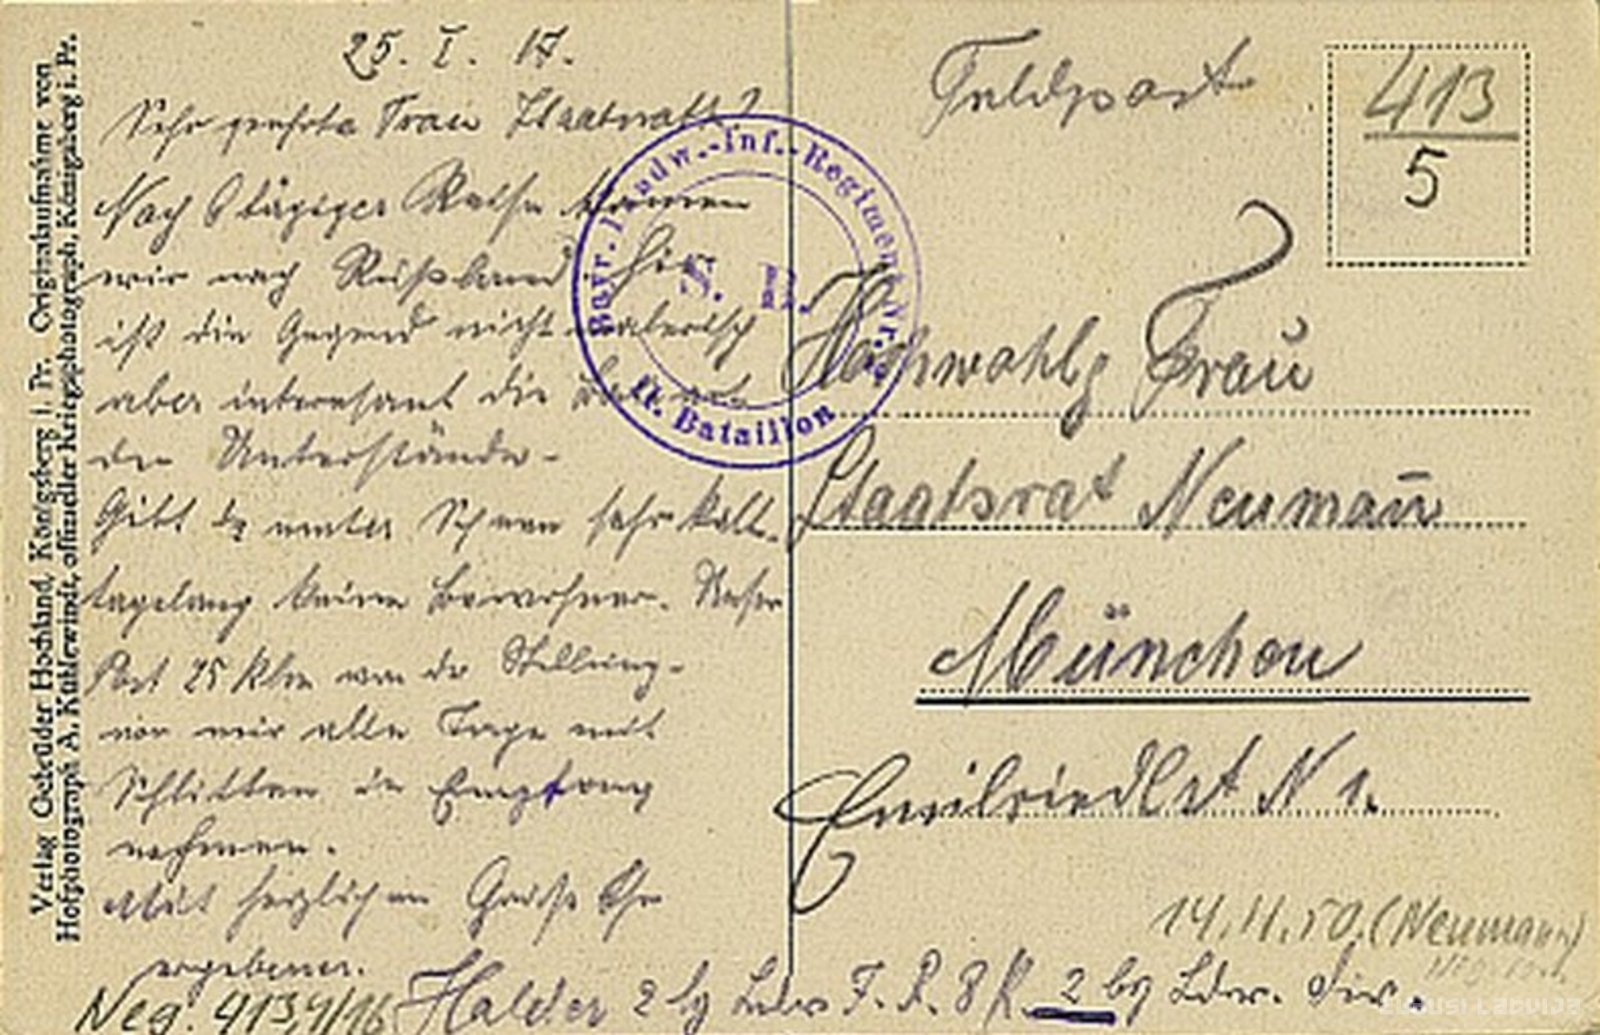 Verlag Gebrüder Hochland, Königsberg i. Pr. Originalaufnahme von
Hofphotograph A. Kühlewindt, offizieller Kriegsphotograph, Königsberg i. Pr.
25. I. 17.
Sehr geehrte Frau Staatsrat!
Nach 8 tägiger Reise kamen
wir nach Rußland. Hier
ist die Gegend nicht malerisch
aber interesant die
die Unterstände.
Gibt es unter Schnee sehr kalt.
tagelang keine Bewohner. Unser
Post 25 klm von der Stellung.
wir alle Tage mit
Schlitten in Empfang
nehmen.
Mit herzlichem Grüße Ihr
ergebener.
Halder 2 by Ldw F. P. 8 K 2 by Ldw. Div.
Neg. 413,4/16
Bayr. Landw.-Inf.-Regiment Nr.
S. B.
II. Bataillon
Feldpost
413
5
Hochwohlg Frau
Staatsrat Neumann
München
Emilriedlst N 1.
14.11.50. (Neumann)